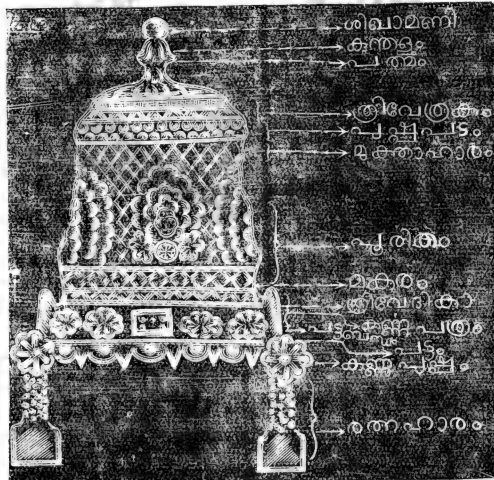 ശിഖാമണി
കുന്തളം
പത്മം
ത്രിവേത്രകം
പുഷ്പപട്ടം
മുക്താഹാരം
പൂരിതം
മകരം
ത്രിവേദികാ
കർണ്ണപത്രം
പട്ടം
കർണ്ണപുഷ്പം
രത്നഹാരം